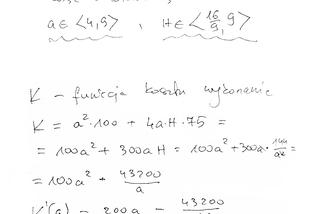 a ∈ <4,9> , H ∈ <16/9, 9>
K – funkcja kosztu wykonania
K = a²·100 + 4a·H·75 =
= 100a² + 300aH = 100a² + 300a·144/a² =
= 100a² + 43200/a
K'(a) = 200a – 43200